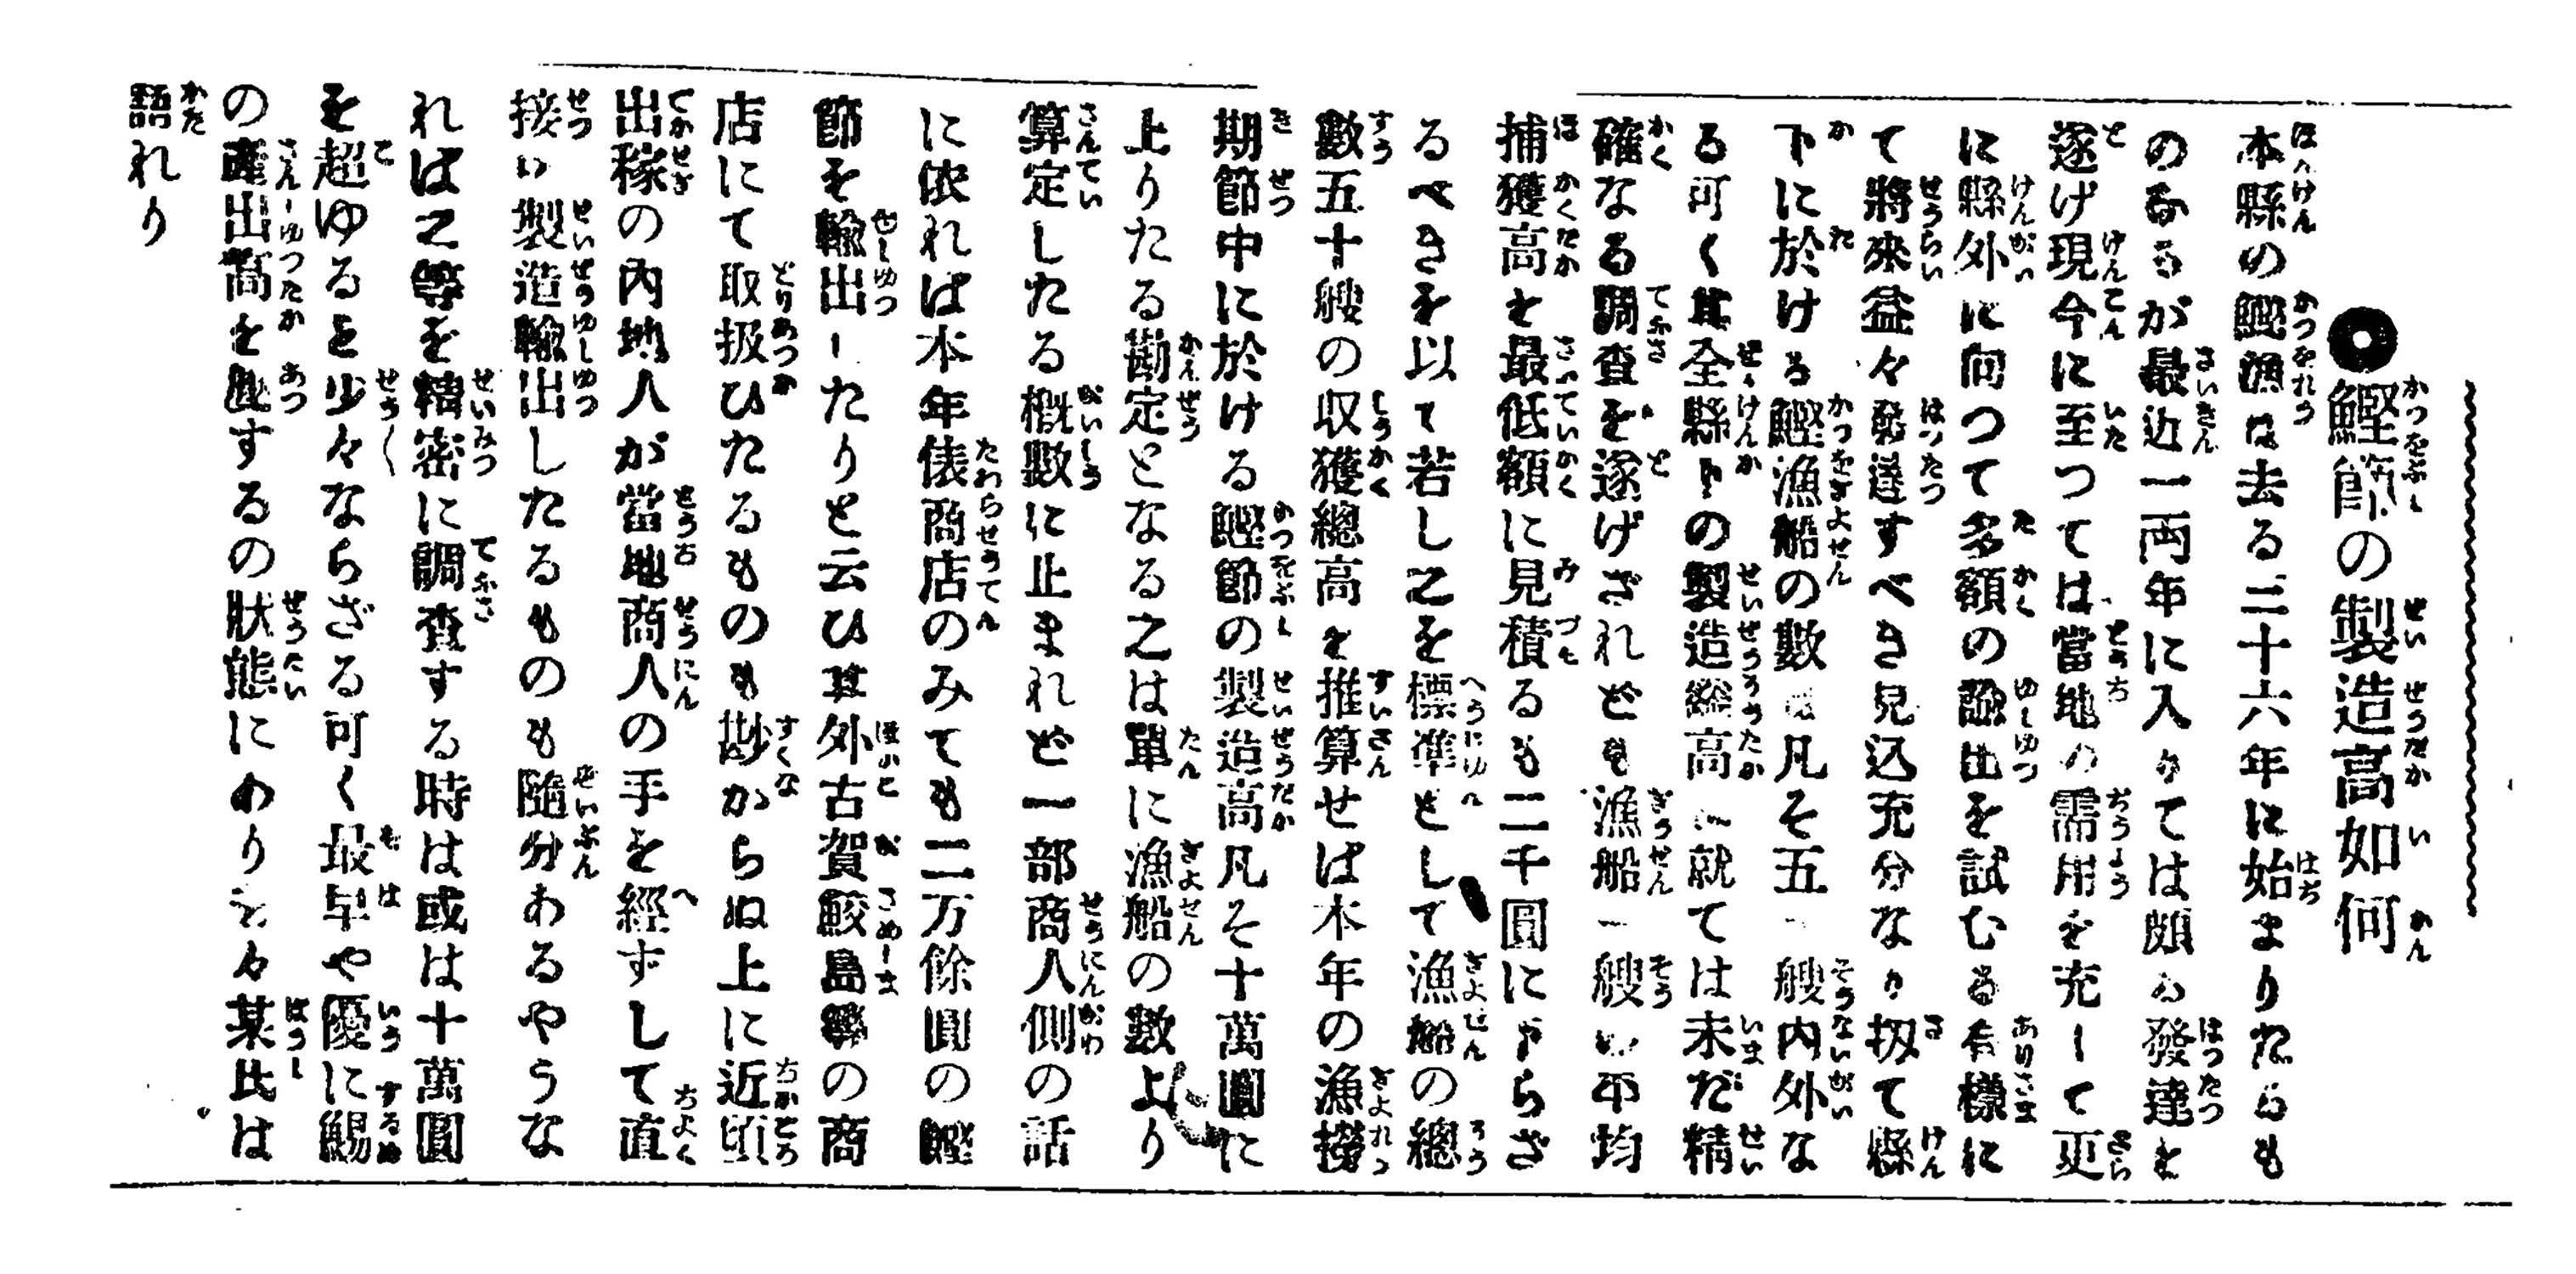 ◉鰹節の製造高如何
本縣の鰹漁は去る三十六年に始まりたるも
のなるが最近一両年に入りては頗る發達を
遂げ現今に至つては當地の需用を充して更
に縣外に向つて多額の輸出を試むる有樣に
て將來益々發達すべき見込充分なり扨て縣
下に於ける鰹漁船の數は凡そ五 艘内外な
る可く其全縣下の製造總高に就ては未だ精
確なる調査を遂げざれども漁船一艘の平均
捕獲高を最低額に見積るも二千圓に下らざ
るべきを以て若し之を標準として漁船の總
數五十艘の収獲總高を推算せば本年の漁撈
期節中に於ける鰹節の製造高凡そ十萬圓に
上りたる勘定となる之は單に漁船の數より
算定したる概數に止まれど一部商人側の話
に依れば本年俵商店のみても二万餘圓の鰹
節を輸出したりと云ひ其外古賀鮫島等の商
店にて取扱ひたるものも尠からぬ上に近頃
出稼の内地人が當地商人の手を經ずして直
接に製造輸出したるものも隨分あるやうな
れば之等を精密に調査する時は或は十萬圓
を超ゆると少々ならざる可く最早や優に鯣
の產出高を凌するの狀態にありと々某氏は
語れり